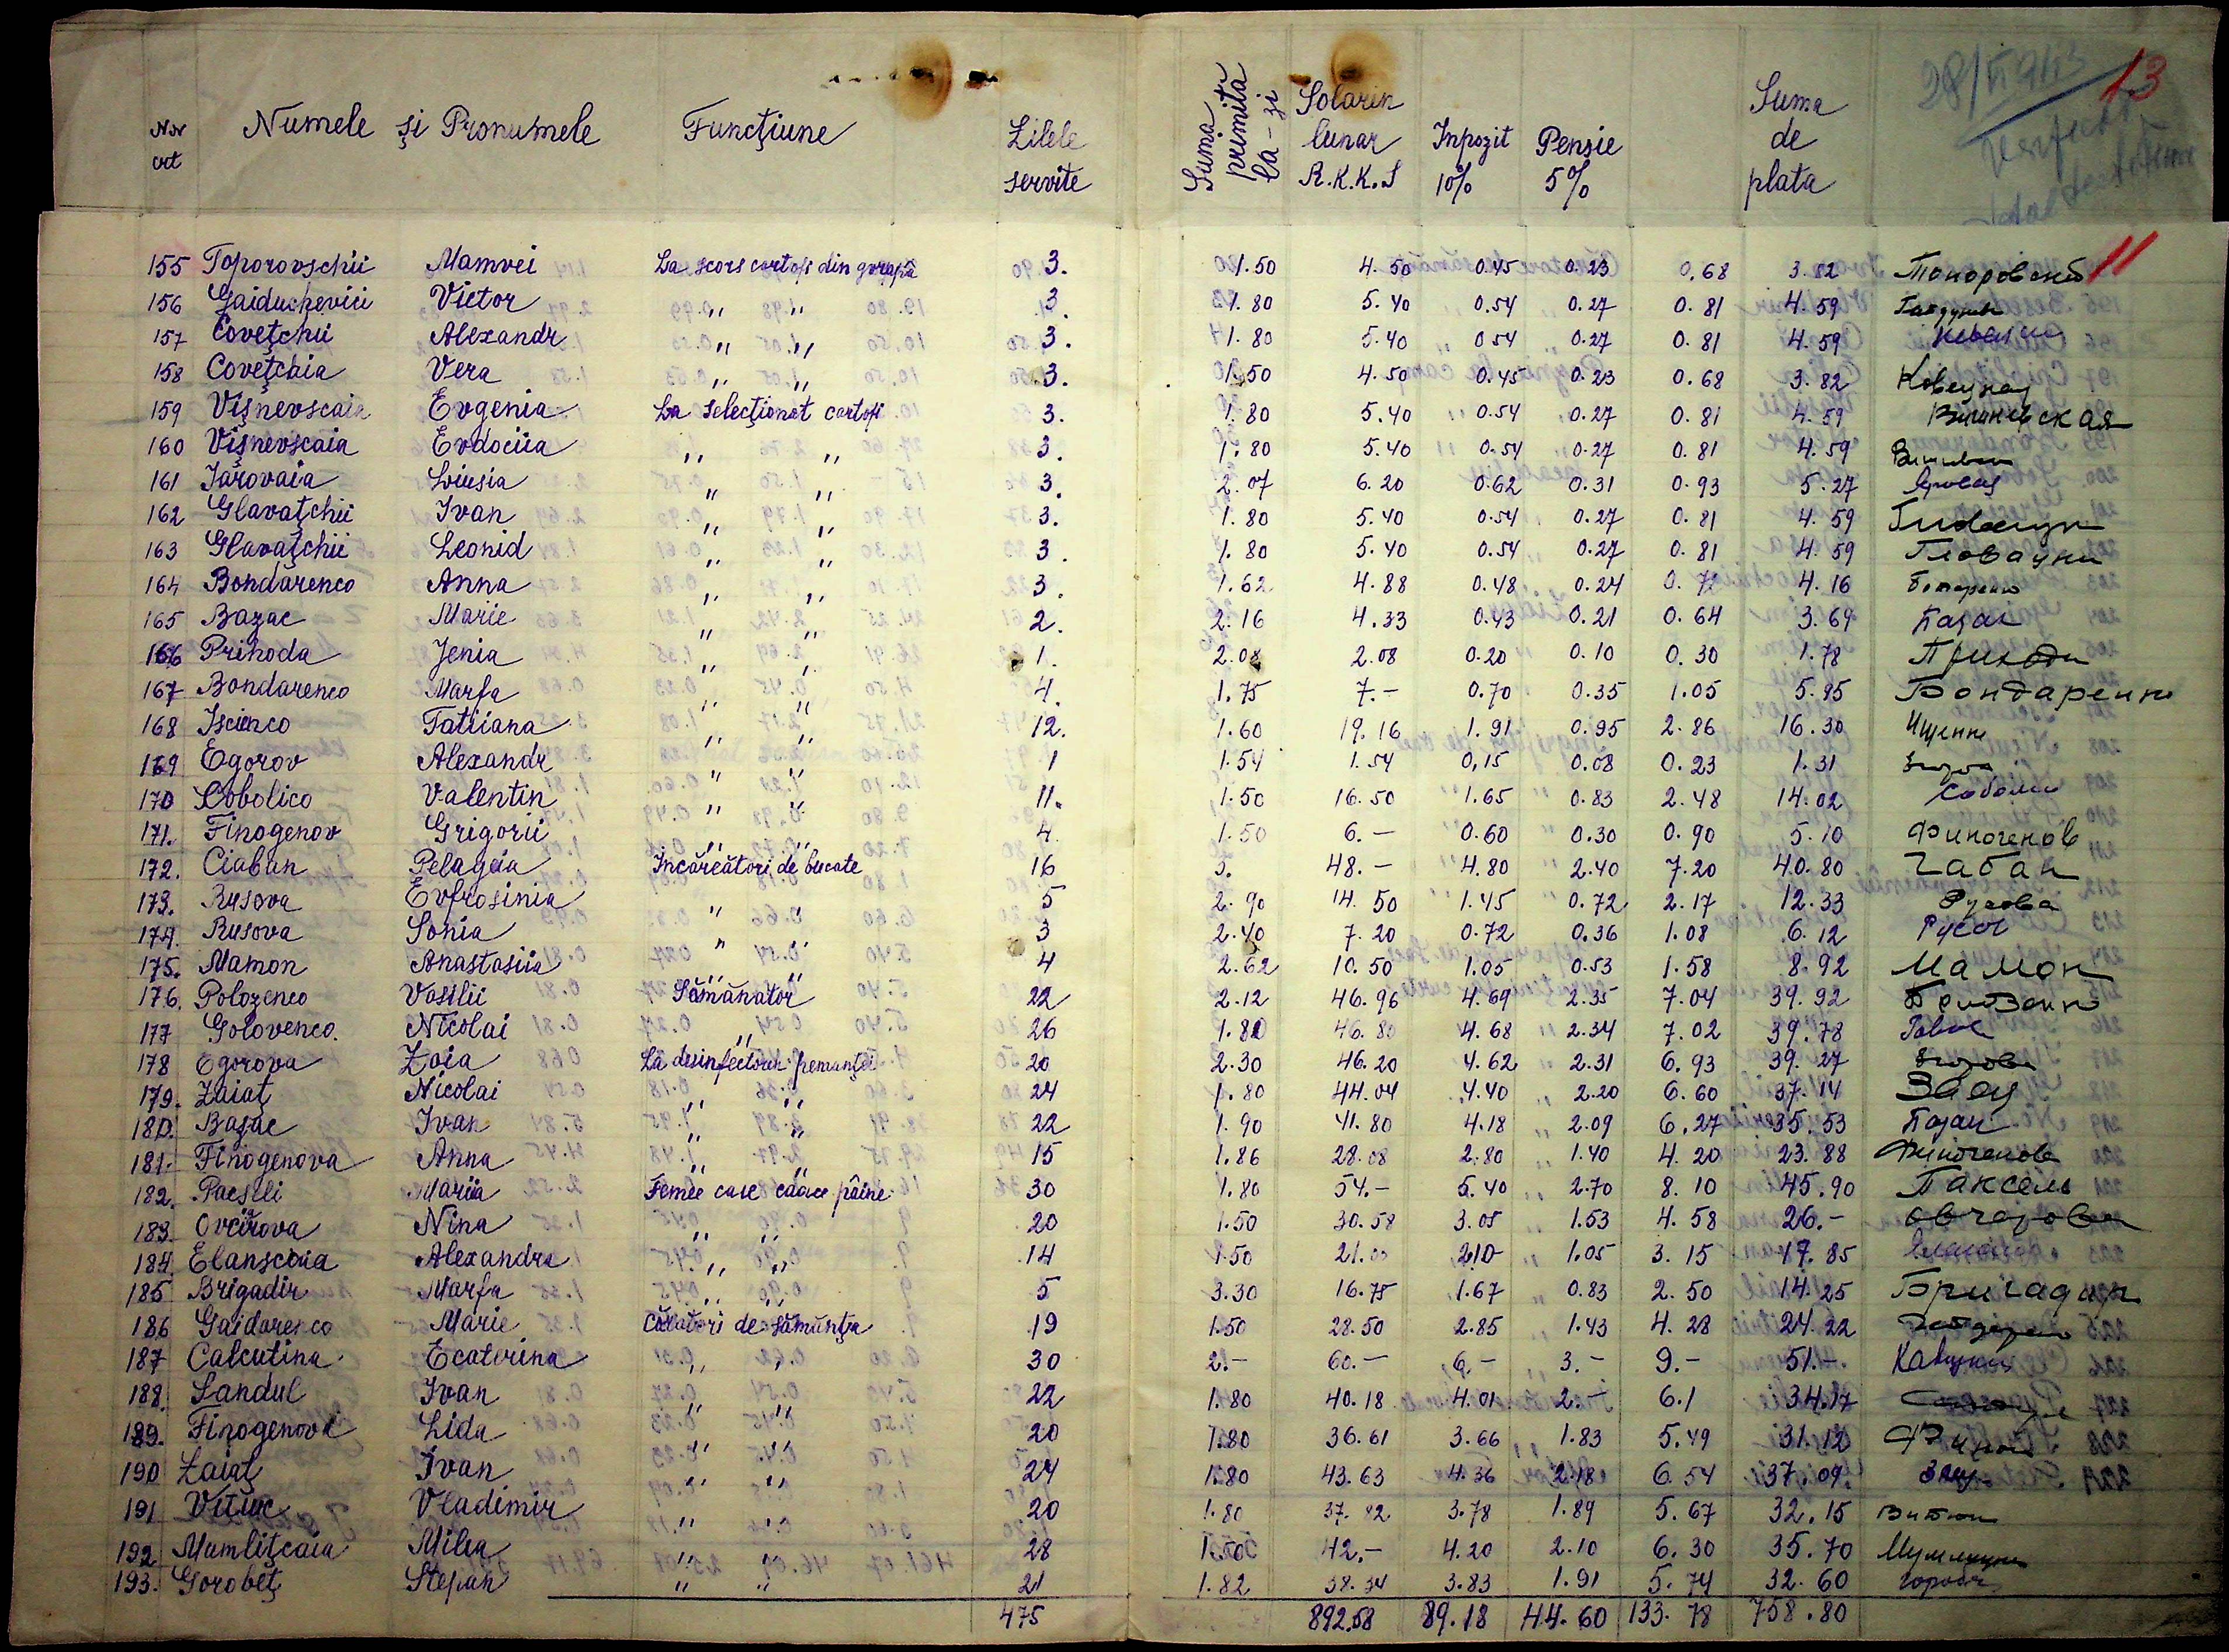 Nr crt Numele și Pronumele Funcţiune Zilele servite Suma primită la-zi Solarin lunar R.K.K.S Inpozit 10% Pensie 5% Suma de plata 13
11
155 Toporovschii Mamvei La scors cartofi din groapă 3. 1.50 4.50 0.45 0.23 0.68 3.82 Топоровский
156 Gaiduchevici Victor " " 3 1.80 5.40 0.54 0.27 0.81 4.59
157 Coveţchii Alexandr " " 3. 1.80 5.40 0.54 0.27 0.81 4.59
158 Coveţchia Vera " " 3. 1.50 4.50 0.45 0.23 0.68 3.82
159 Vişnevscaia Evgenia La selecţionat cartofi 3. 1.80 5.40 0.54 0.27 0.81 4.59 Вишневская
160 Vişnevscaia Evdociia " " 3. 1.80 5.40 0.54 0.27 0.81 4.59
161 Iarovaia Liusia " " 3. 2.07 6.20 0.62 0.31 0.93 5.27
162 Glavaţchii Ivan " " 3. 1.80 5.40 0.54 0.27 0.81 4.59
163 Glavaţchii Leonid " " 3. 1.80 5.40 0.54 0.27 0.81 4.59
164 Bondarenco Anna " " 3. 1.62 4.88 0.48 0.24 0.71 4.16
165 Bazac Marie " " 2. 2.16 4.33 0.43 0.21 0.64 3.69 Казак
166 Prihoda Jenia " " 1. 2.08 2.08 0.20 0.10 0.30 1.78 Приходи
167 Bondarenco Marfa " " 4. 1.75 7.- 0.70 0.35 1.05 5.95 Бондаренко
168 Iscienco Tatiiana " " 12. 1.60 19.16 1.91 0.95 2.86 16.30 Ищенко
169 Egorov Alexandr " " 1 1.54 1.54 0,15 0.08 0.23 1.31
170 Cobolico Valentin " " 11. 1.50 16.50 1.65 0.83 2.48 14.02
171. Finogenov Grigorii " " 4 1.50 6.- 0.60 0.30 0.90 5.10 Финогенов
172. Ciaban Pelageia Incărcători de bucate 16 3. 48.- 4.80 2.40 7.20 40.80 Чабан
173. Rusova Evfrosinia " " 5 2.90 14.50 1.45 0.72 2.17 12.33 Русова
174. Rusova Sonia " " 3 2.40 7.20 0.72 0.36 1.08 6.12 Русов
175. Mamon Anastasiia " " 4 2.62 10.50 1.05 0.53 1.58 8.92 Мамон
176. Polozenco Vasilii Sămănator 22 2.12 46.96 4.69 2.35 7.04 39.92
177 Golovenco. Nicolai " 26 1.80 46.80 4.68 2.34 7.02 39.78
178 Egorova Zoia La desinfectorul 20 2.30 46.20 4.62 2.31 6.93 39.27 Егорова
179. Zaiaţ Nicolai " " 24 1.80 44.04 4.40 2.20 6.60 37.14 Заец
180. Bazac Ivan " " 22 1.90 41.80 4.18 2.09 6.27 35.53 Казак
181. Finogenova Anna " " 15 1.86 28.08 2.80 1.40 4.20 23.88 Финогенова
182. Pacsili Mariia Femee care coace pâine 30 1.80 54.- 5.40 2.70 8.10 45.90 Паксель
183. Ovcirova Nina " " 20 1.50 30.58 3.05 1.53 4.58 26.- Овчарова
184. Elanscaia Alexandra " " 14 1.50 21.00 2.10 1.05 3.15 17.85
185 Brigadir Marfa " " 5 3.30 16.75 1.67 0.83 2.50 14.25 Бригадир
186 Gaidarenco Marie Cărători de sămunţa 19 1.50 28.50 2.85 1.43 4.28 24.22
187 Calcutina Ecaterina " " 30 2.- 60.- 6.- 3.- 9.- 51.-
188. Sandul Ivan " " 22 1.80 40.18 4.01 2.- 6.1 34.17
189. Finogenova Lida " " 20 1.80 36.61 3.66 1.83 5.49 31.12
190 Zaiaţ Ivan " " 24 1.80 43.63 4.36 2.18 6.54 37.09 Заец
191 Vitiuc Vladimir " " 20 1.80 37.82 3.78 1.89 5.67 32.15 Витюк
192 Mumliţcaia Milea " " 28 1.50 42.- 4.20 2.10 6.30 35.70
193. Gorobeţ Stepan " " 21 1.82 38.34 3.83 1.91 5.74 32.60
475 892.58 89.18 44.60 133.78 758.80